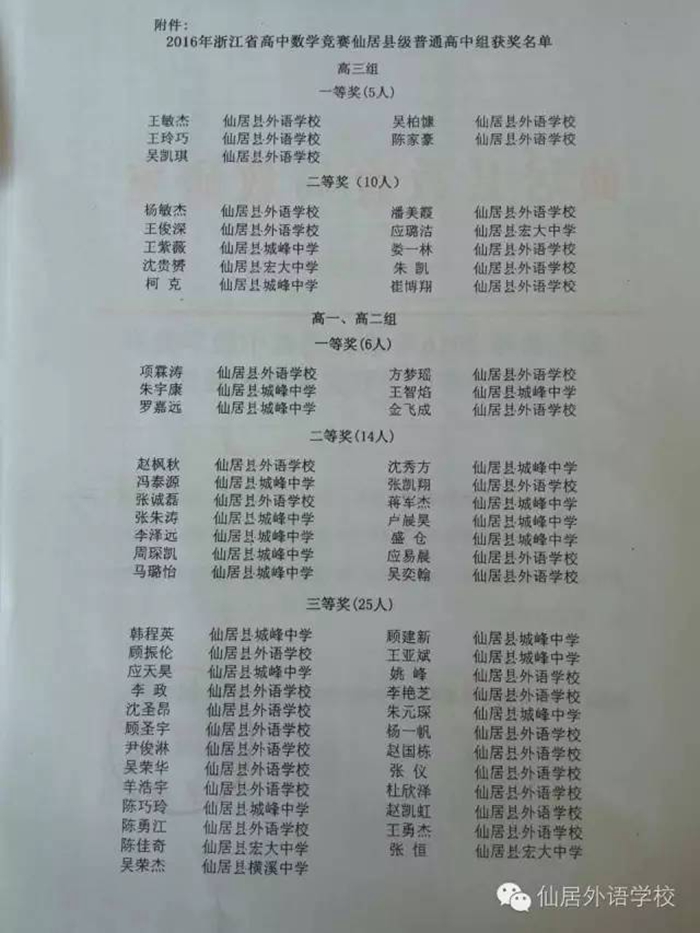 附件:
2016年浙江省高中数学竞赛仙居县级普通高中组获奖名单
高三组
一等奖(5人)
王敏杰 仙居县外语学校 吴柏慷 仙居县外语学校
王玲巧 仙居县外语学校 陈家豪 仙居县外语学校
吴凯琪 仙居县外语学校
二等奖(10人)
杨敏杰 仙居县外语学校 潘美霞 仙居县外语学校
王俊深 仙居县外语学校 应璐洁 仙居县宏大中学
王紫薇 仙居县城峰中学 娄一林 仙居县外语学校
沈贵赟 仙居县宏大中学 朱凯 仙居县外语学校
柯克 仙居县城峰中学 崔博翔 仙居县外语学校
高一、高二组
一等奖(6人)
项霖涛 仙居县外语学校 方梦瑶 仙居县外语学校
朱宇康 仙居县城峰中学 王智焰 仙居县城峰中学
罗嘉远 仙居县城峰中学 金飞成 仙居县外语学校
二等奖(14人)
赵枫秋 仙居县外语学校 沈秀方 仙居县城峰中学
冯泰源 仙居县城峰中学 张凯翔 仙居县外语学校
张诚磊 仙居县外语学校 蒋军杰 仙居县城峰中学
张朱涛 仙居县城峰中学 卢晨昊 仙居县城峰中学
李泽远 仙居县城峰中学 盛仓 仙居县城峰中学
周琛凯 仙居县城峰中学 应易晨 仙居县外语学校
马璐怡 仙居县城峰中学 吴奕翰 仙居县外语学校
三等奖(25人)
韩程英 仙居县城峰中学 顾建新 仙居县城峰中学
顾振伦 仙居县外语学校 王亚斌 仙居县城峰中学
应天昊 仙居县城峰中学 姚峰 仙居县外语学校
李政 仙居县外语学校 李艳芝 仙居县外语学校
沈圣昂 仙居县外语学校 朱元琛 仙居县城峰中学
顾圣宇 仙居县外语学校 杨一帆 仙居县外语学校
尹俊淋 仙居县外语学校 赵国栋 仙居县外语学校
吴荣华 仙居县外语学校 张仪 仙居县外语学校
羊浩宇 仙居县外语学校 杜欣泽 仙居县外语学校
陈巧玲 仙居县城峰中学 赵凯虹 仙居县外语学校
陈勇江 仙居县外语学校 王勇杰 仙居县外语学校
陈佳奇 仙居县宏大中学 张恒 仙居县宏大中学
吴荣杰 仙居县横溪中学
仙居外语学校